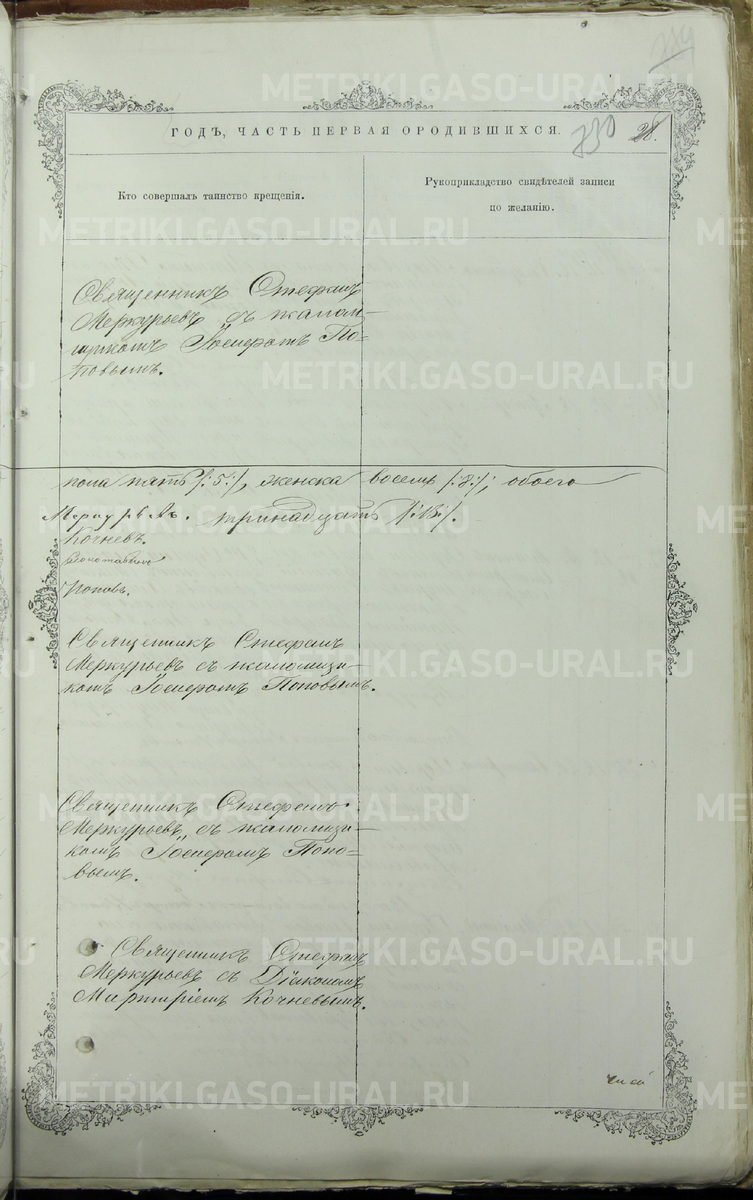 229
ГОДЪ, ЧАСТЬ ПЕРВАЯ О РОДИВШИХСЯ.
230
28.
Кто совершалъ таинство крещенія.
Рукоприкладство свидѣтелей записи
по желанію.
Священникъ Стефанъ
Меркурьевъ съ псалом-
щикомъ Іосифомъ По-
повымъ.
пола пять /:5:/, женска восемь /:8:/, обоего
Меркурьевъ. тринадцать /:13:/.
Кочневъ.
Поповъ.
Священникъ Стефанъ
Меркурьевъ съ псаломщи-
комъ Іосифомъ Поповымъ.
Священникъ Стефанъ
Меркурьевъ съ псаломщи-
комъ Іосифомъ Попо-
вымъ.
Священникъ Стефанъ
Меркурьевъ съ Діакономъ
Мартиріемъ Кочневымъ.
METRIKI.GASO-URAL.RU